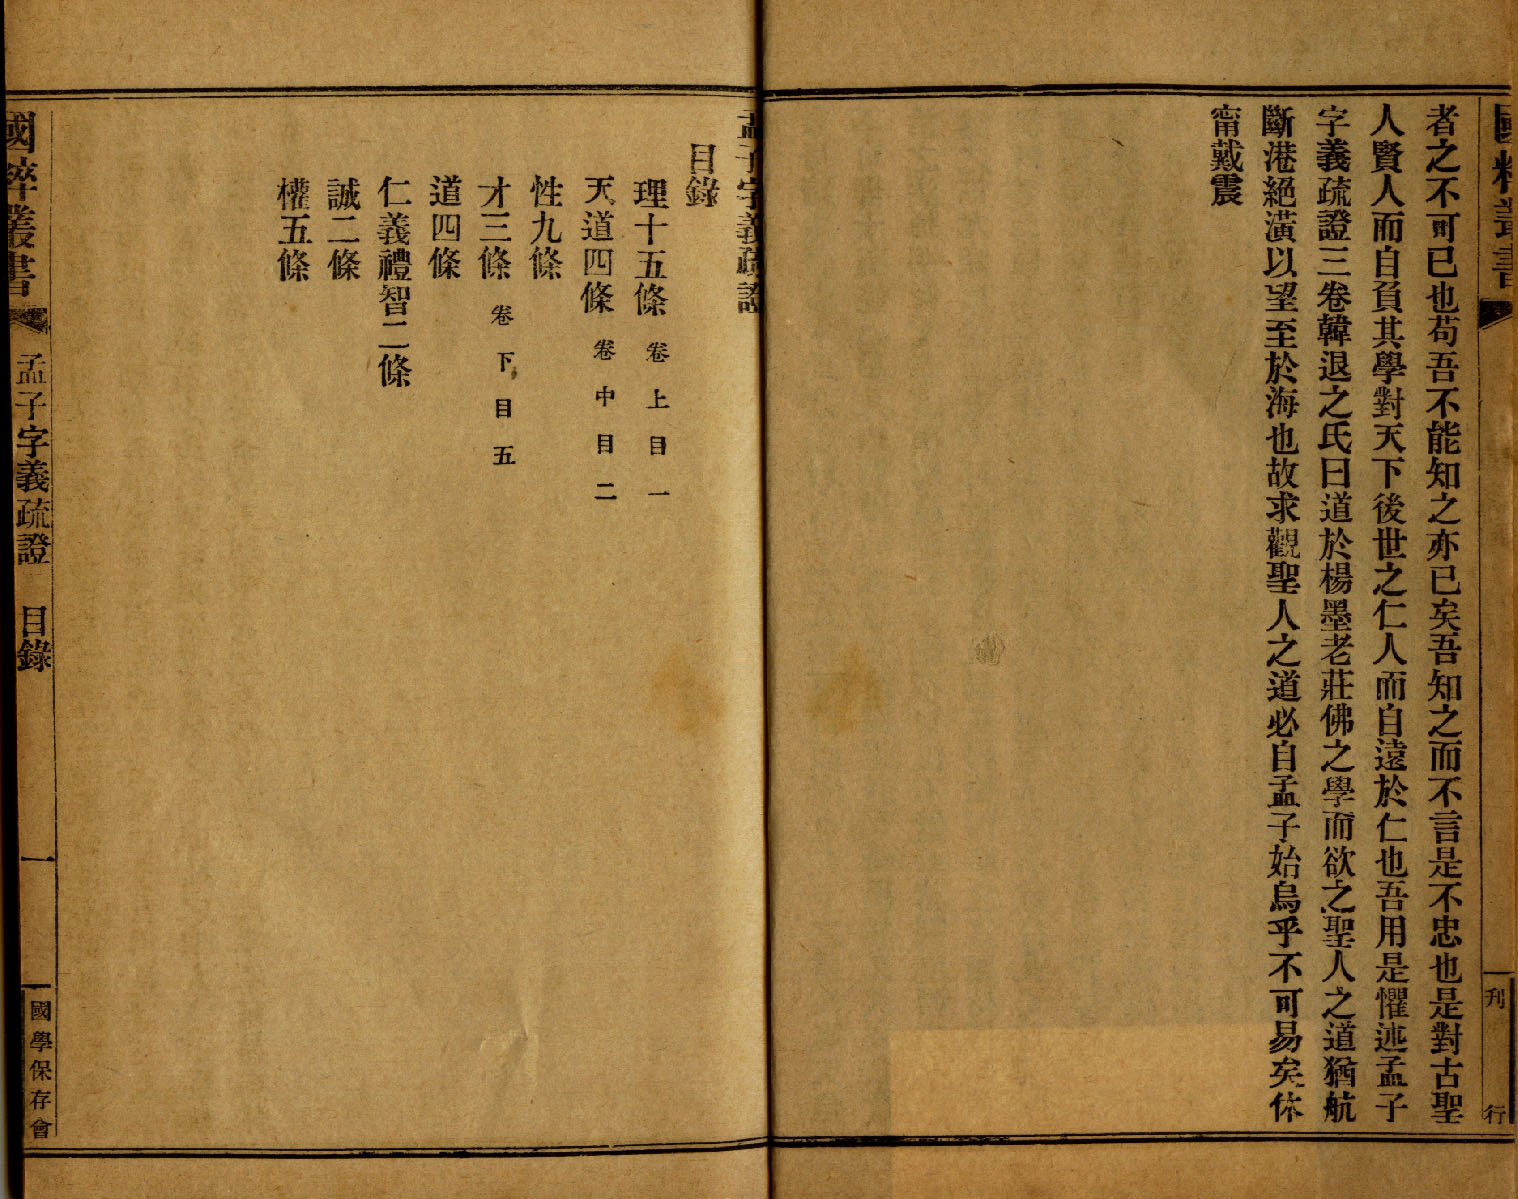 國粹叢書
刊行
者之不可已也苟吾不能知之亦已矣吾知之而不言是不忠也是對古聖
人賢人而自負其學對天下後世之仁人而自遠於仁也吾用是懼述孟子
字義疏證三卷韓退之氏曰道於楊墨老莊佛之學而欲之聖人之道猶航
斷港絕潢以望至於海也故求觀聖人之道必自孟子始烏乎不可易矣休
甯戴震
孟子字義疏證
目錄
理十五條 卷上目一
天道四條 卷中目二
性九條
才三條 卷下目五
道四條
仁義禮智二條
誠二條
權五條
國粹叢書
孟子字義疏證 目錄
一
國學保存會